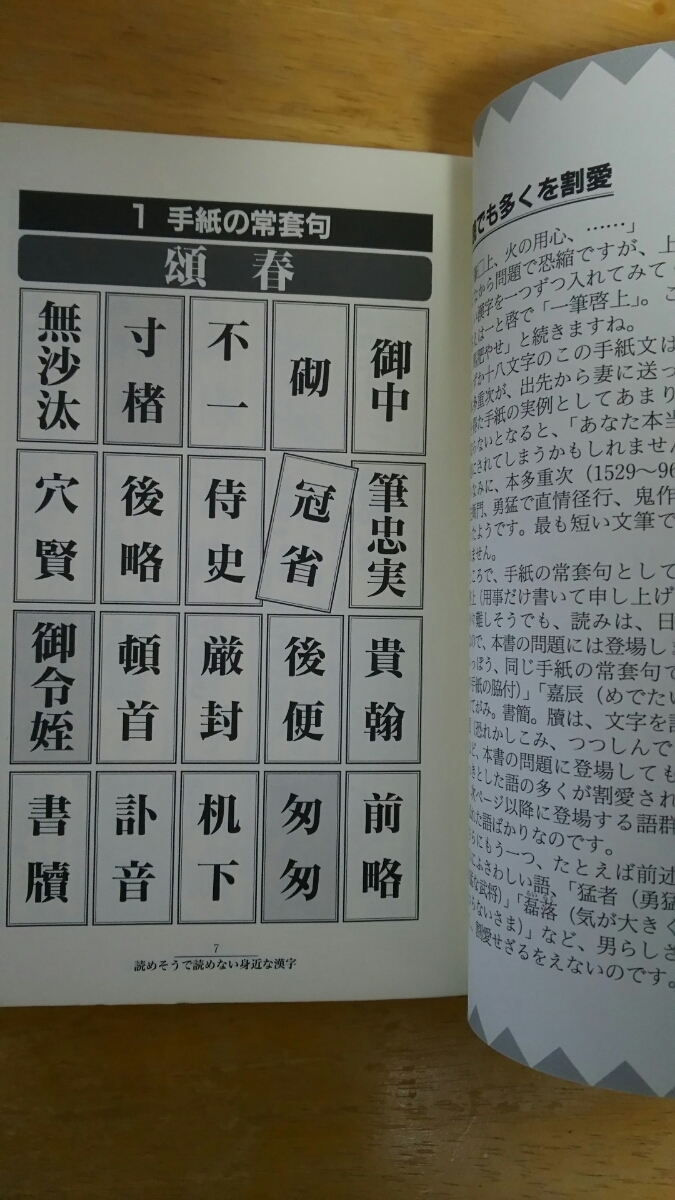 1 手紙の常套句
頌 春
無沙汰
寸楮
不一
砌
御中
穴賢
後略
侍史
冠省
筆忠実
御令姪
頓首
厳封
後便
貴翰
書牘
訃音
机下
匆匆
前略
7
読めそうで読めない身近な漢字
でも多くを割愛
上、火の用心、……」
から問題で恐縮ですが、上
漢字を一つずつ入れてみて
は一と啓で「一筆啓上」。こ
肥やせ」と続きますね。
か十八文字のこの手紙文は
重次が、出先から妻に送っ
た手紙の実例としてあまり
らないとなると、「あなた本当
にされてしまうかもしれません
なみに、本多重次（1529〜96
衛門、勇猛で直情径行、鬼作
たようです。最も短い文筆で
ません。
ころで、手紙の常套句として
上（用事だけ書いて申し上げ
難しそうでも、読みは、日
ので、本書の問題には登場しま
っぽう、同じ手紙の常套句で
手紙の脇付）」「嘉辰（めでたい
てがみ。書簡。牘は、文字を
（恐れかしこみ、つつしんで
ど、本書の問題に登場しても
きとした語の多くが割愛され
次ページ以降に登場する語群
れた語ばかりなのです。
らにもう一つ、たとえば前述
にふさわしい語、「猛者（勇猛
な武将）」「磊落（気が大きく
らないさま）」など、男らしさ
、割愛せざるをえないのです。